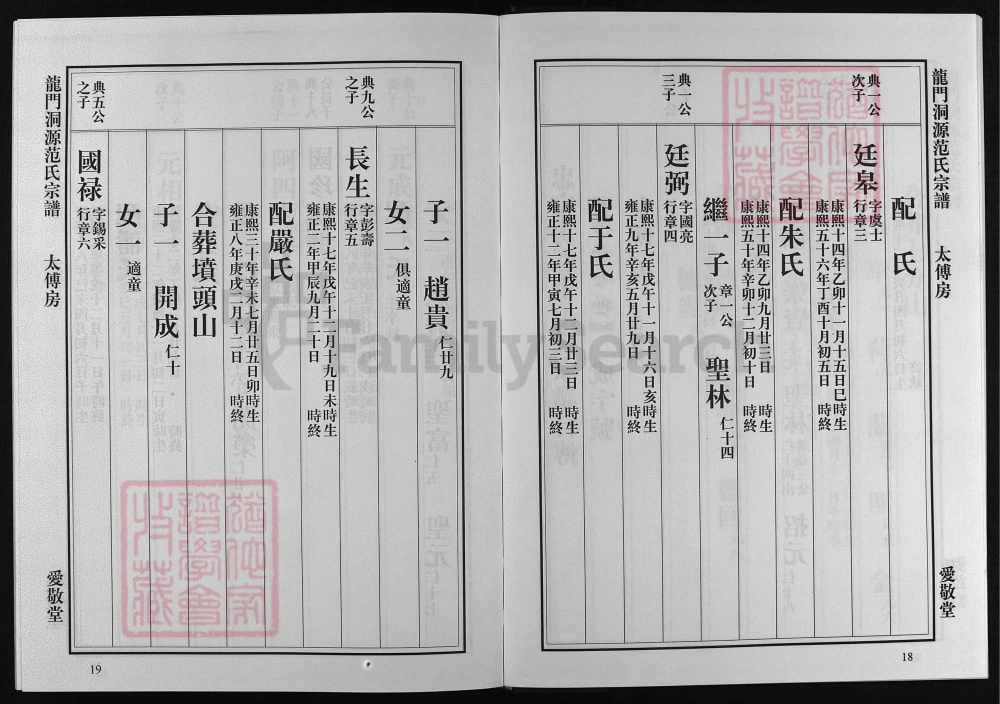 龍門洞源范氏宗譜 太傅房 愛敬堂
配 氏
典一公
次子
廷皋
字虞士
行章三
康熙十四年乙卯十一月十五日巳時生
康熙五十六年丁酉十月初五日 時終
配朱氏
康熙十四年乙卯九月廿三日 時生
康熙五十年辛卯十二月初十日 時終
繼一子 章一公
次子 聖林 仁十四
典一公
三子
廷弼
字國亮
行章四
康熙十七年戊午十一月十六日亥時生
雍正九年辛亥五月廿九日 時終
配于氏
康熙十七年戊午十二月廿三日 時生
雍正十二年甲寅七月初三日 時終
18
子一 趙貴 仁廿九
女二 俱適童
典九公
之子
長生
字彭壽
行章五
康熙十七年戊午十二月十九日未時生
雍正二年甲辰九月二十日 時終
配嚴氏
康熙三十年辛未七月廿五日卯時生
雍正八年庚戌二月十二日 時終
合葬墳頭山
子一 開成 仁十
女一 適童
典五公
之子
國禄
字錫采
行章六
龍門洞源范氏宗譜 太傅房 愛敬堂
19
FamilySearch